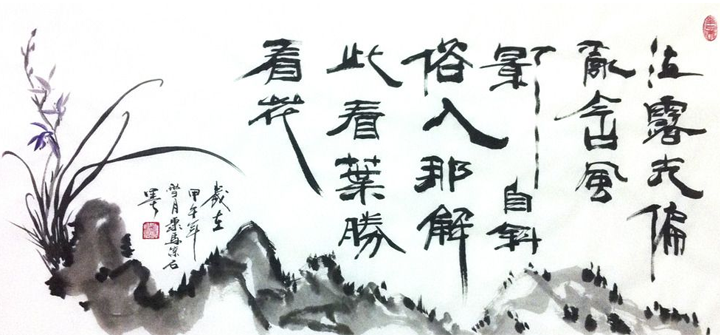 泣露光偏
亂含風
影自斜
俗人那解
此看葉勝
看花
歲在
甲午年
墨